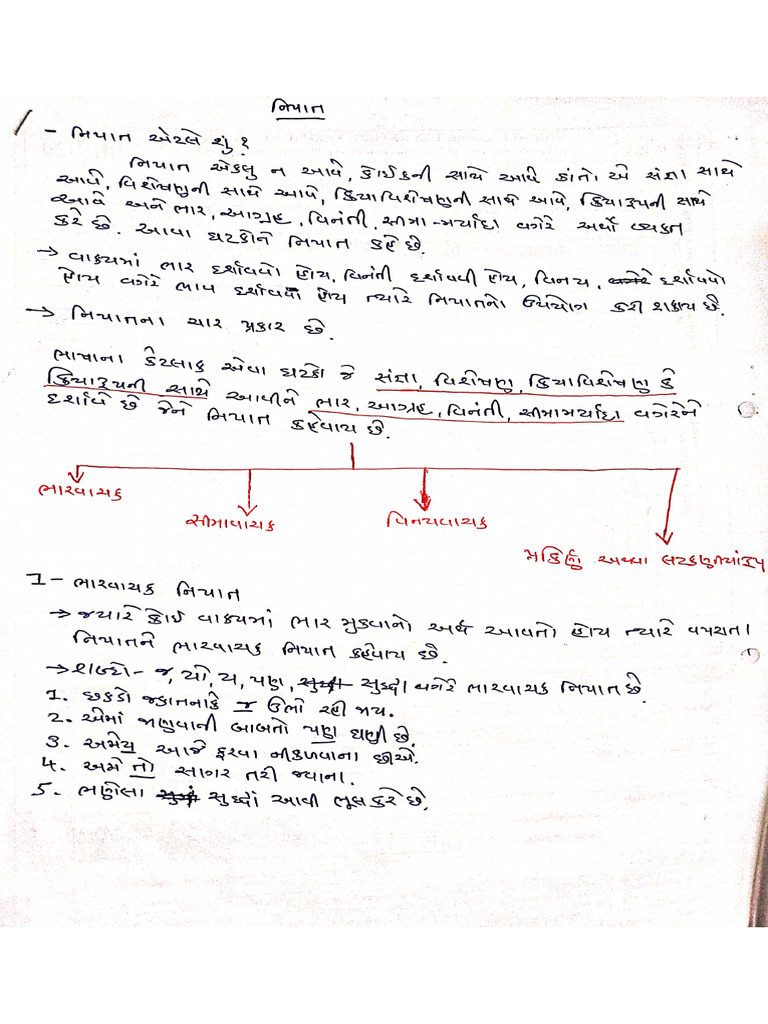 નિપાત
- નિપાત એટલે શું ?
નિપાત એકલુ ન આવે, કોઈકની સાથે આવે કાંતો એ સંજ્ઞા સાથે
આવે, વિશેષણની સાથે આવે, ક્રિયાવિશેષણની સાથે આવે, ક્રિયારૂપની સાથે
આવે અને ભાર, આગ્રહ, વિનંતી, સીમા-મર્યાદા વગેરે અર્થો વ્યક્ત
કરે છે. આવા ઘટકોને નિપાત કહે છે.
→ વાક્યમાં ભાર દર્શાવવો હોય, વિનંતી દર્શાવવી હોય, વિનય, વગેરે દર્શાવવો
હોય વગેરે ભાવ દર્શાવવા હોય ત્યારે નિપાતનો ઉપયોગ કરી શકાય છે.
→ નિપાતના ચાર પ્રકાર છે.
ભાષાના કેટલાક એવા ઘટકો જે સંજ્ઞા, વિશેષણ, ક્રિયાવિશેષણ કે
ક્રિયારૂપની સાથે આવીને ભાર, આગ્રહ, વિનંતી, સીમામર્યાદા વગેરેને
દર્શાવે છે જેને નિપાત કહેવાય છે.
ભારવાચક
સીમાવાચક
વિનયવાચક
પ્રકિર્ણ અથવા લટકણીયાંરૂપ
1 - ભારવાચક નિપાત
→ જ્યારે કોઈ વાક્યમાં ભાર મુકવાનો અર્થ આવતો હોય ત્યારે વપરાતા
નિપાતને ભારવાચક નિપાત કહેવાય છે.
→ શબ્દો - જ, તો, ય, પણ, સુધ્ધાં વગેરે ભારવાચક નિપાત છે.
1. છકડો જકાતનાકે જ ઉભો રહી જાય.
2. એમાં જાણવાની બાબતો પણ ઘણી છે.
3. અમેય આજે ફરવા નીકળવાના છીએ.
4. અમે તો સાગર તરી જવાના.
5. ભણેલા સુધ્ધાં આવી ભૂલ કરે છે.